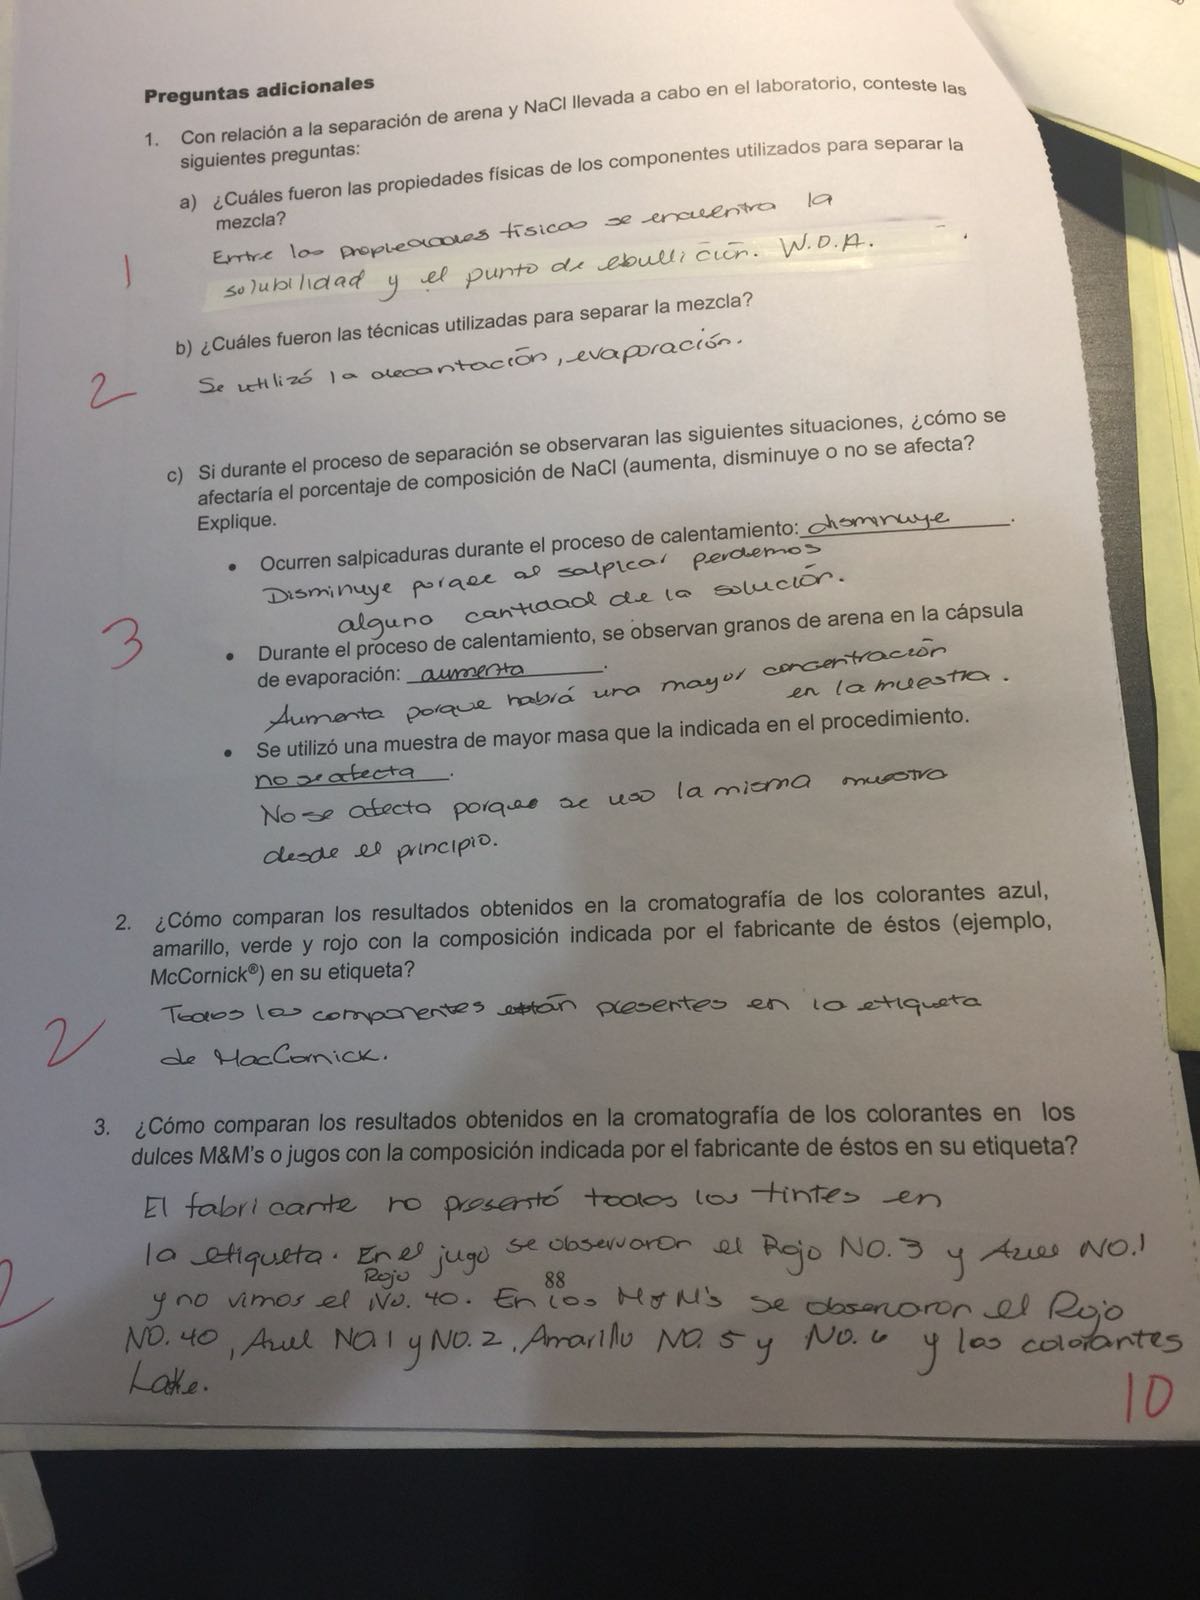 Preguntas adicionales
1. Con relación a la separación de arena y NaCl llevada a cabo en el laboratorio, conteste las
siguientes preguntas:
a) ¿Cuáles fueron las propiedades físicas de los componentes utilizados para separar la
mezcla?
Entre las propiedades físicas se encuentra la
1 solubilidad y el punto de ebullición. W.D.A.
b) ¿Cuáles fueron las técnicas utilizadas para separar la mezcla?
2 Se utilizó la decantación, evaporación.
c) Si durante el proceso de separación se observaran las siguientes situaciones, ¿cómo se
afectaría el porcentaje de composición de NaCl (aumenta, disminuye o no se afecta?
Explique.
• Ocurren salpicaduras durante el proceso de calentamiento: disminuye.
Disminuye porque al salpicar perdemos
alguno cantidad de la solución.
3
• Durante el proceso de calentamiento, se observan granos de arena en la cápsula
de evaporación: aumenta.
Aumenta porque habrá una mayor concentración
en la muestra.
• Se utilizó una muestra de mayor masa que la indicada en el procedimiento.
no se afecta.
No se afecta porque se uso la misma muestra
desde el principio.
2. ¿Cómo comparan los resultados obtenidos en la cromatografía de los colorantes azul,
amarillo, verde y rojo con la composición indicada por el fabricante de éstos (ejemplo,
McCornick®) en su etiqueta?
Todos los componentes están presentes en la etiqueta
2 de MacCornick.
3. ¿Cómo comparan los resultados obtenidos en la cromatografía de los colorantes en los
dulces M&M's o jugos con la composición indicada por el fabricante de éstos en su etiqueta?
El fabricante no presentó todos los tintes en
la etiqueta. En el jugo se observaron el Rojo NO. 3 y Azul NO.1
2 y no vimos el Rojo NO. 40. En los M&M's se observaron el Rojo
NO. 40, Azul NO.1 y NO. 2, Amarillo NO. 5 y NO. 6 y los colorantes
Lake.
10
88